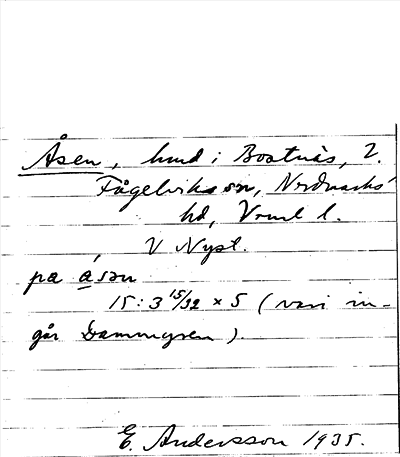 Åsen, hmd i Bostnäs, 2.
Fågelviks sn, Nordmarks
hd, Vrml l.
V Nyst.
på åsən
15:3 15/32 × 5 (vari in-
går Dammyren).
E. Andersson 1935.